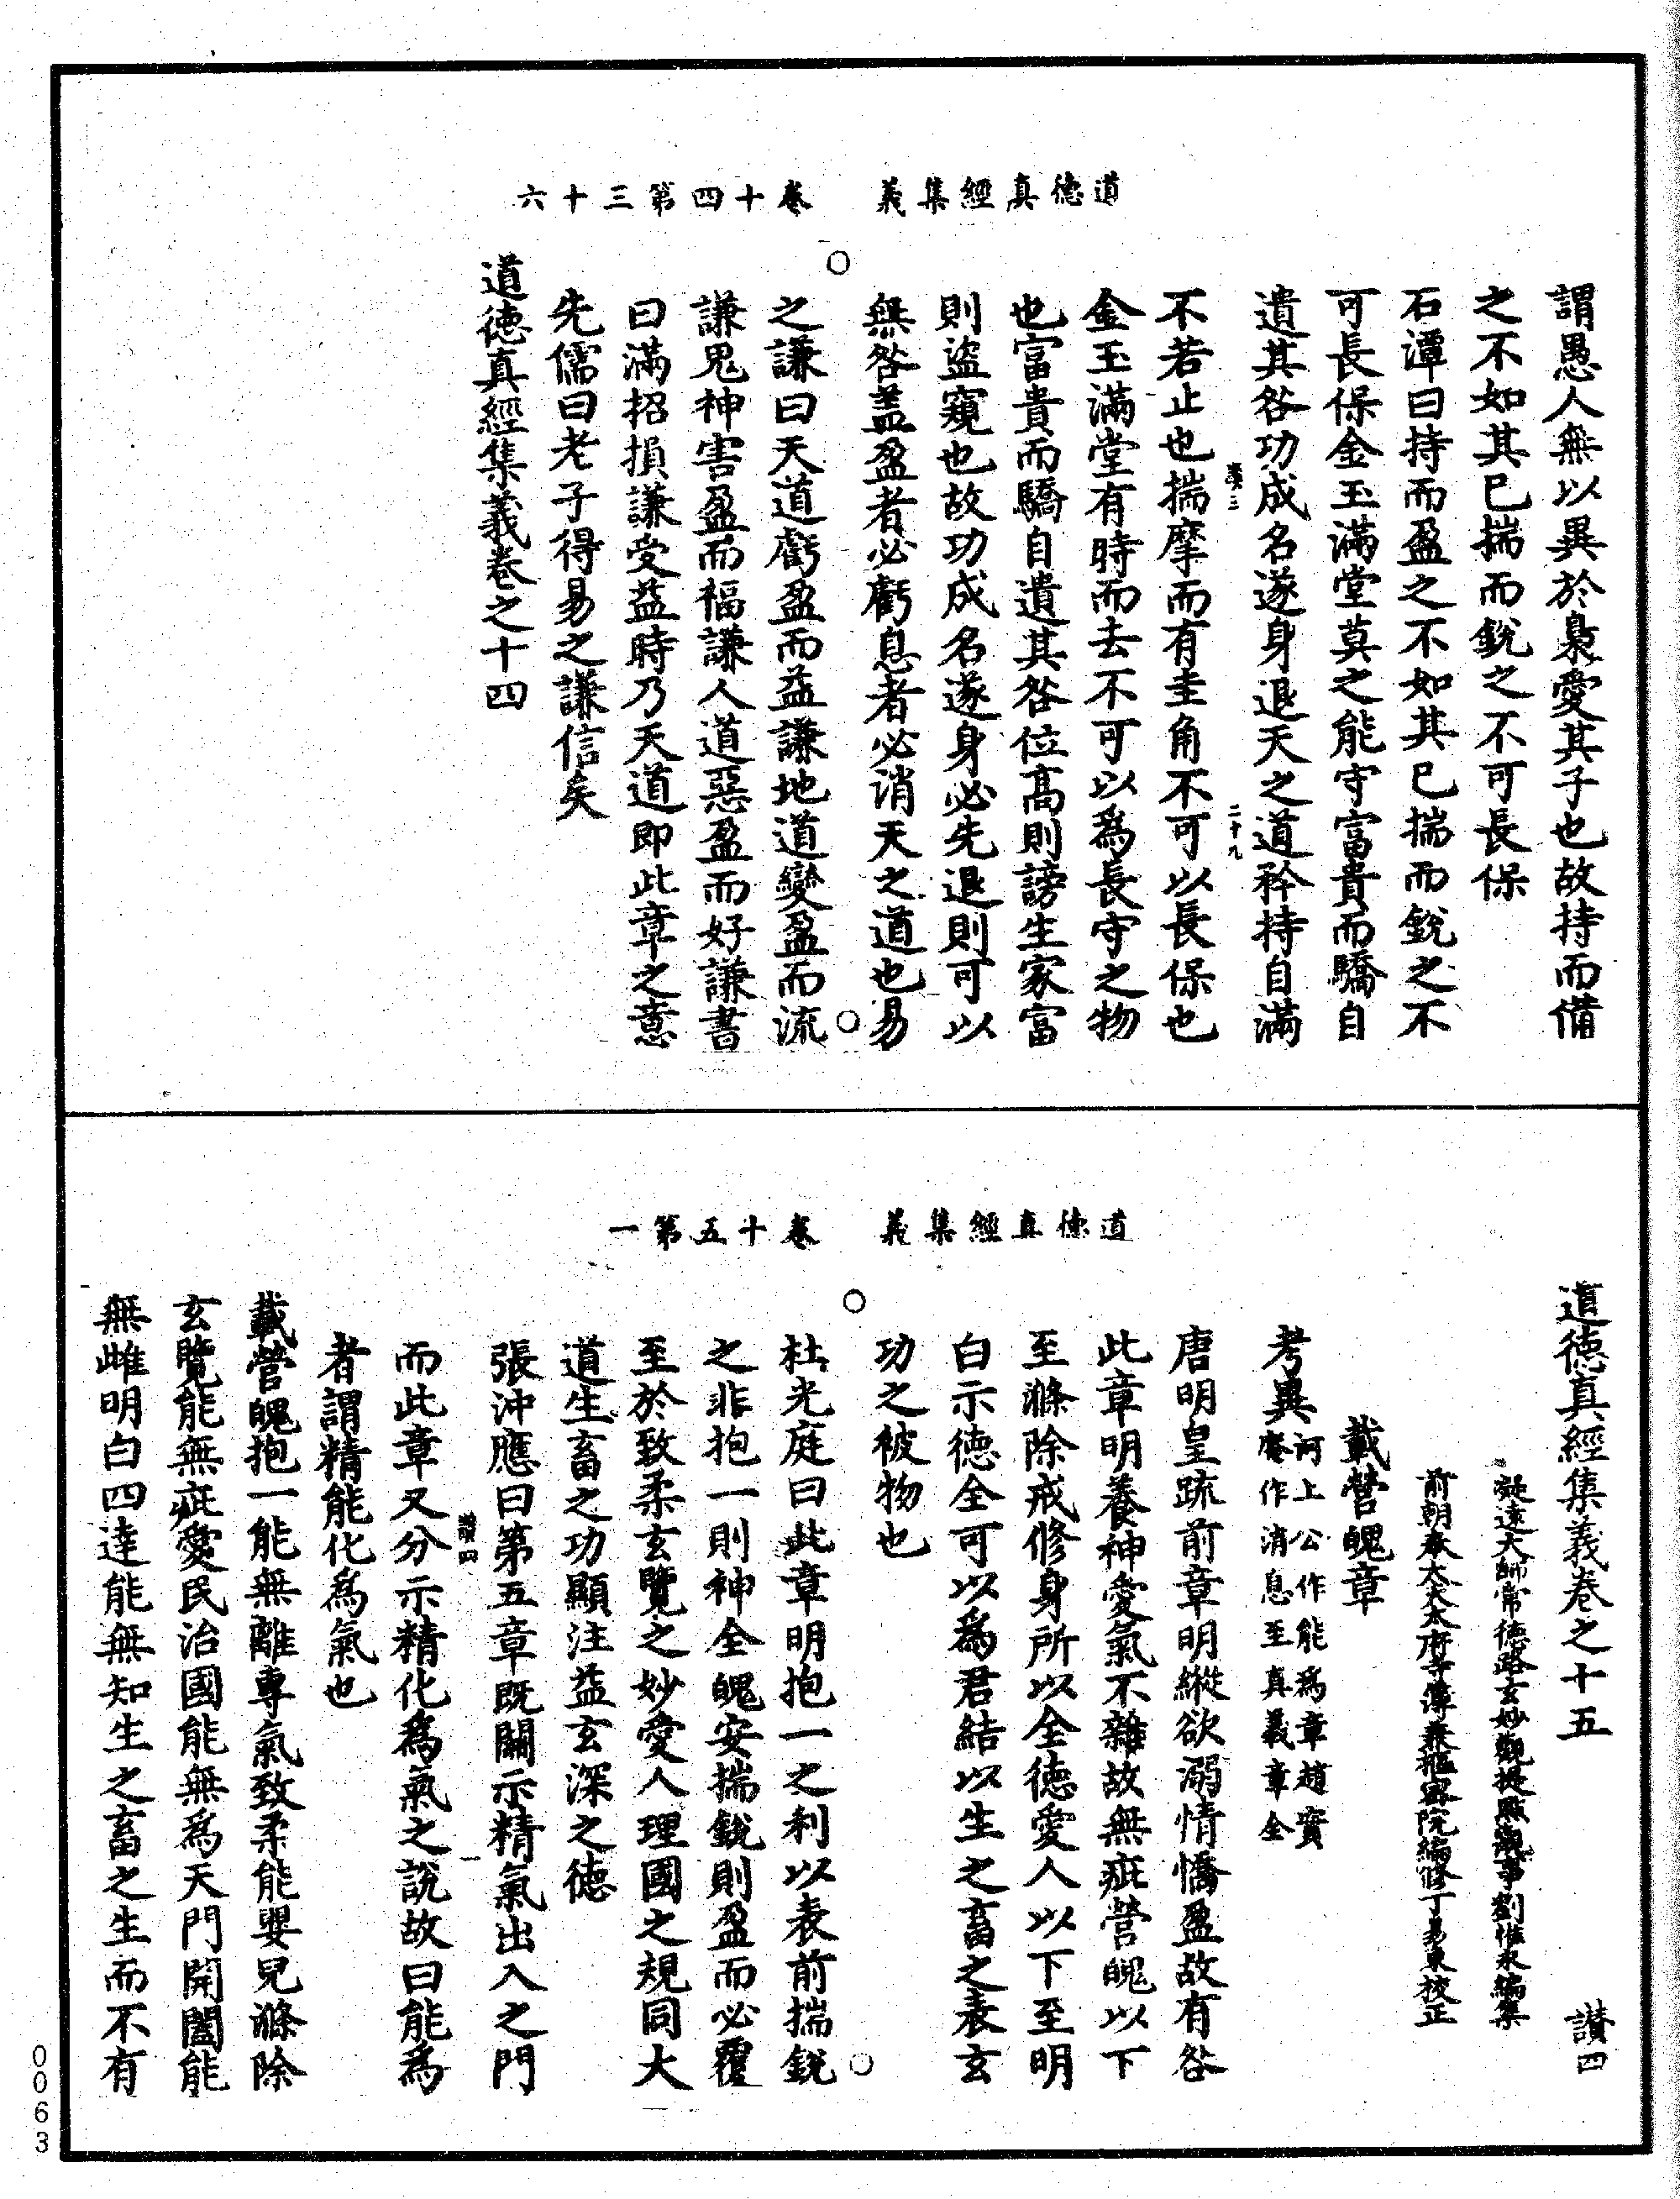 道德真經集義　卷十四第三十六
謂愚人無以異於梟愛其子也故持而備
之不如其已揣而銳之不可長保
石潭曰持而盈之不如其已揣而銳之不
可長保金玉滿堂莫之能守富貴而驕自
遺其咎功成名遂身退天之道矜持自滿
讃三　二十九
不若止也揣摩而有圭角不可以長保也
金玉滿堂有時而去不可以為長守之物
也富貴而驕自遺其咎位高則謗生家富
則盜窺也故功成名遂身必先退則可以
無咎盖盈者必虧息者必消天之道也易
之謙曰天道虧盈而益謙地道變盈而流
謙鬼神害盈而福謙人道惡盈而好謙書
曰滿招損謙受益時乃天道即此章之意
先儒曰老子得易之謙信矣
道德真經集義卷之十四
道德真經集義　卷十五第一
道德真經集義卷之十五　讃四
凝遠大師常德路玄妙觀提點觀事劉惟永編集
前朝奉大夫太府寺簿兼樞密院編修丁易東校正
載營魄章
考異河上公作能為章趙實
庵作消息至真義章全
唐明皇疏前章明縱欲溺情憍盈故有咎
此章明養神愛氣不雜故無疵營魄以下
至滌除戒修身所以全德愛人以下至明
白示德全可以為君結以生之畜之表玄
功之被物也
杜光庭曰此章明抱一之利以表前揣銳
之非抱一則神全魄安揣銳則盈而必覆
至於致柔玄覽之妙愛人理國之規同大
道生畜之功顯注益玄深之德
張沖應曰第五章既闡示精氣出入之門
讃四　一
而此章又分示精化為氣之說故曰能為
者謂精能化為氣也
載營魄抱一能無離專氣致柔能嬰兒滌除
玄覽能無疵愛民治國能無為天門開闔能
無雌明白四達能無知生之畜之生而不有
0063